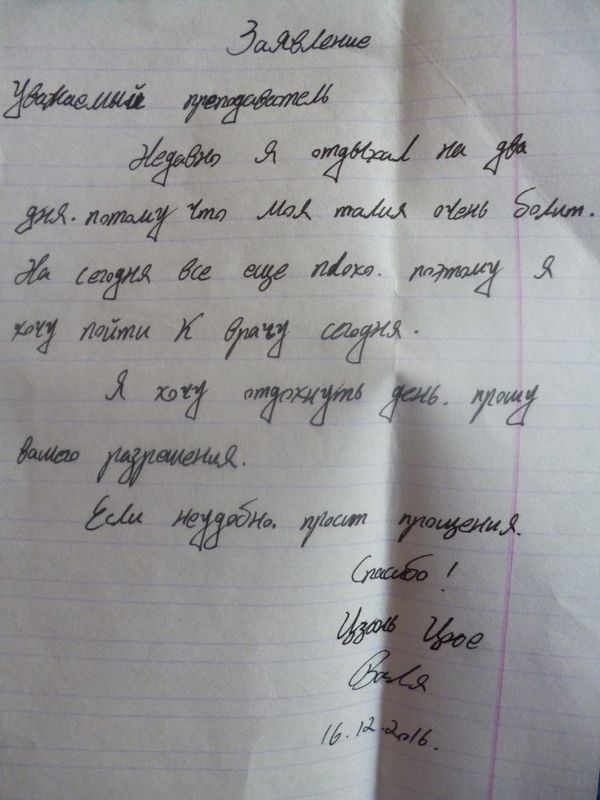 Заявление
Уважаемый преподаватель
Недавно я отдыхал на два
дня. потому что моя талия очень болит.
На сегодня все еще плохо. поэтому я
хочу пойти к врачу сегодня.
Я хочу отдохнуть день. прошу
вашего разрешения.
Если неудобно. просит прощения.
Спасибо!
Цзюе
Валя
16.12.2016.